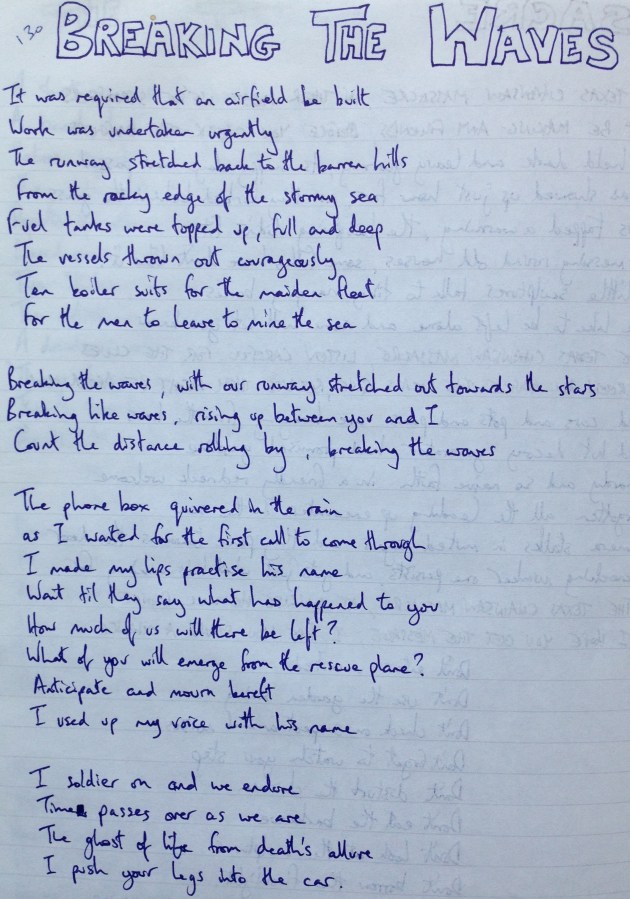 130
BREAKING THE WAVES
It was required that an airfield be built
Work was undertaken urgently
The runway stretched back to the barren hills
From the rocky edge of the stormy sea
Fuel tanks were topped up, full and deep
The vessels thrown out courageously
Ten boiler suits for the maiden fleet
For the men to leave to mine the sea
Breaking the waves, with our runway stretched out towards the stars
Breaking like waves, rising up between you and I
Count the distance rolling by, breaking the waves
The phone box quivered in the rain
as I waited for the first call to come through
I made my lips practise his name
Wait til they say what has happened to you
How much of us will there be left?
What of you will emerge from the rescue plane?
Anticipate and mourn bereft
I used up my voice with his name
I soldier on and we endure
Time passes over as we are
The ghost of life from death's allure
I push your legs into the car.